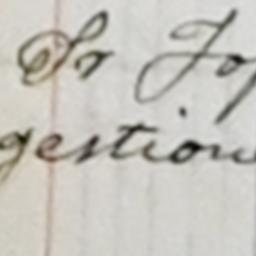 Sr Jo
gestion